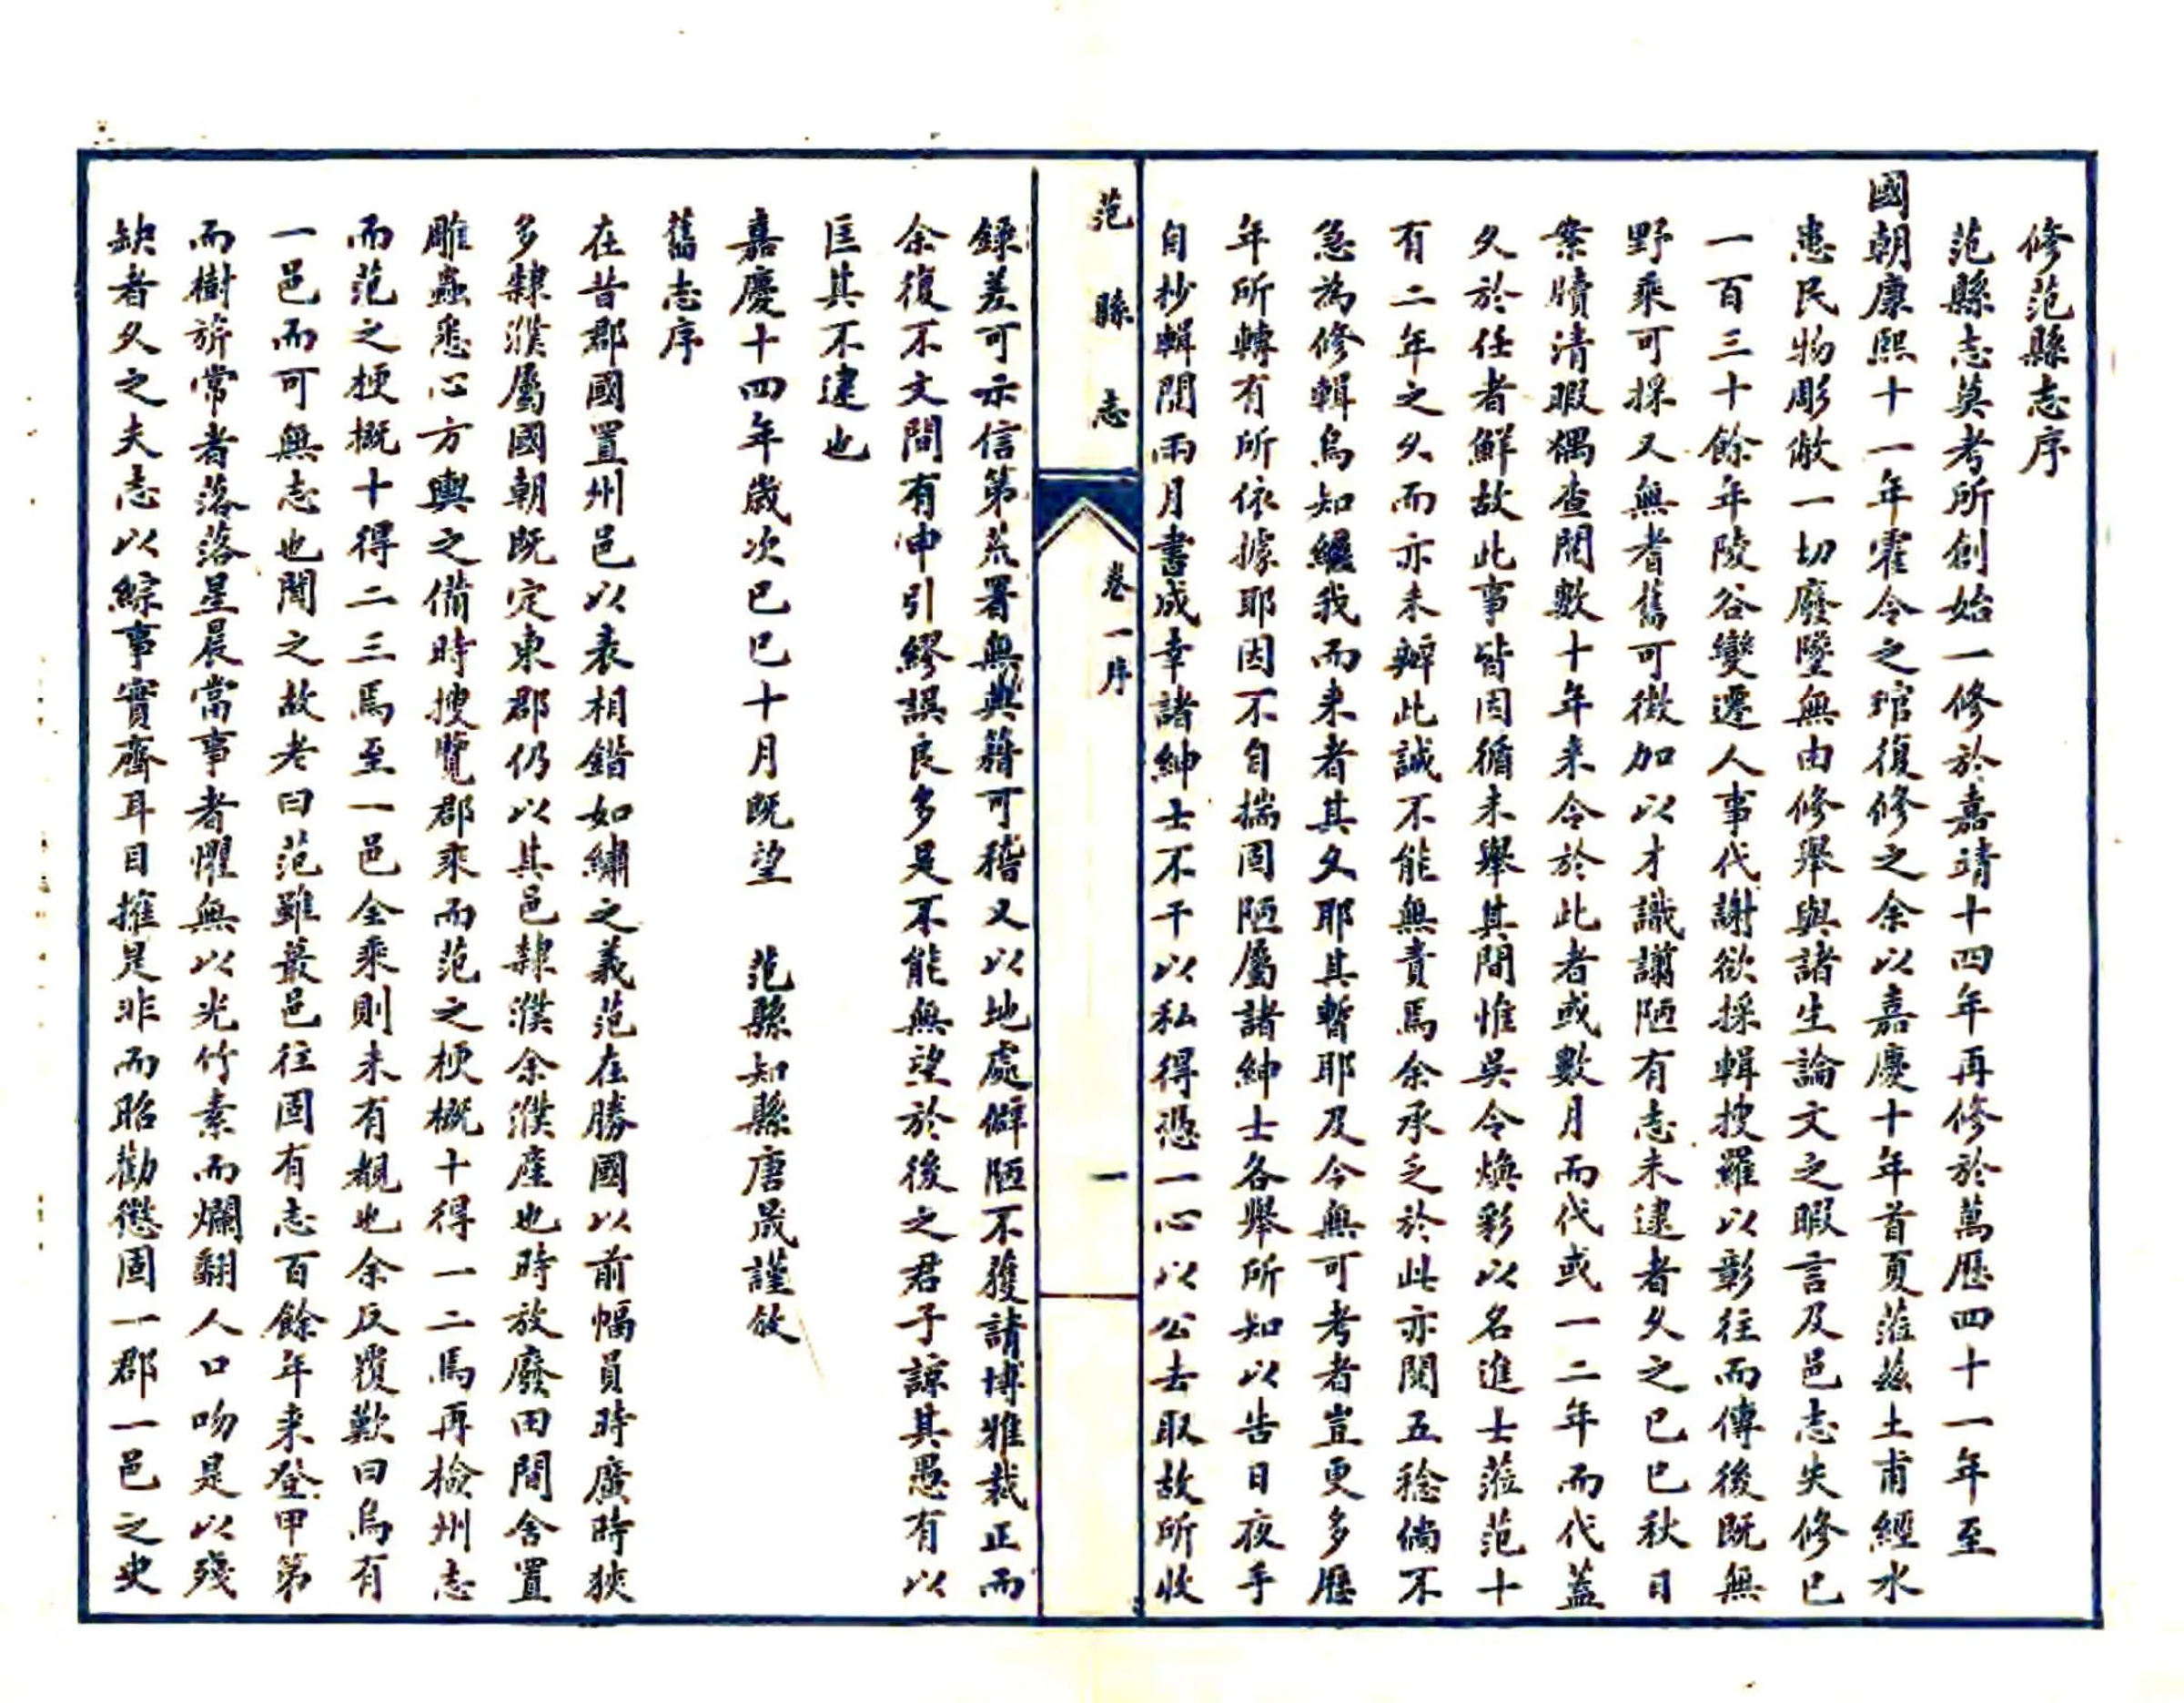 修范縣志序
范縣志莫考所創始一修於嘉靖十四年再修於萬歷四十一年至
國朝康熙十一年霍令之琯復修之余以嘉慶十年首夏蒞茲土甫經水
患民物彫敝一切廢墜無由修舉與諸生論文之暇言及邑志失修已
一百三十餘年陵谷變遷人事代謝欲採輯搜羅以彰往而傳後既無
野乘可採又無耆舊可徵加以才識譾陋有志未逮者久之己巳秋日
案牘清暇獨查閱數十年來令於此者或數月而代或一二年而代蓋
久於任者鮮故此事皆因循未舉其間惟吳令煥彩以名進士蒞范十
有二年之久而亦未辦此誠不能無責焉余承乏於此亦閱五稔倘不
急為修輯烏知繼我而来者其久耶其暫耶及今無可考者豈更多歷
年所轉有所依據耶因不自揣固陋屬諸紳士各舉所知以告日夜手
自抄輯閱兩月書成幸諸紳士不干以私得憑一心以公去取故所收
范縣志 卷一序 一
錄差可示信第荒署無典籍可稽又以地處僻陋不獲請博雅裁正而
余復不文間有申引繆誤良多是不能無望於後之君子諒其愚有以
匡其不逮也
嘉慶十四年歲次己巳十月既望 范縣知縣唐晟謹敘
舊志序
在昔郡國置州邑以表相錯如繡之義范在勝國以前幅員時廣時狹
多隸濮屬國朝既定東郡仍以其邑隸濮余濮產也時放廢田間舍置
雕蟲悉心方輿之備時搜覽郡乘而范之梗概十得一二焉再檢州志
而范之梗概十得二三焉至一邑全乘則未有覩也余反覆歎曰烏有
一邑而可無志也聞之故老曰范雖蕞邑往固有志百餘年来登甲第
而樹旂常者落落星晨當事者懼無以光竹素而爛翻人口吻是以殘
缺者久之夫志以綜事實齊耳目摧是非而昭勸懲固一郡一邑之史